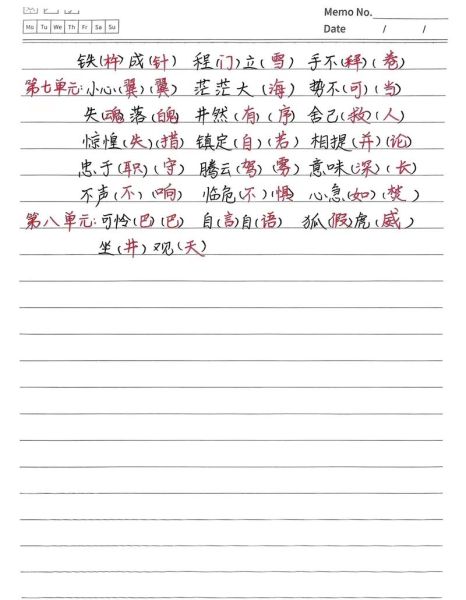 Memo No.
Mo Tu We Th Fr Sa Su
Date / /
铁(杵)成(针) 程(门)立(雪) 手不(释)(卷)
第七单元:小心(翼)(翼) 茫茫大(海) 势不(可)(当)
失(魂)落(魄) 井然(有)(序) 舍己(救)(人)
惊惶(失)(措) 镇定(自)(若) 相提(并)(论)
忠于(职)(守) 腾云(驾)(雾) 意味(深)(长)
不声(不)(响) 临危(不)(惧) 心急(如)(焚)
第八单元:可怜(巴)(巴) 自(言)自(语) 狐(假)虎(威)
坐(井)观(天)